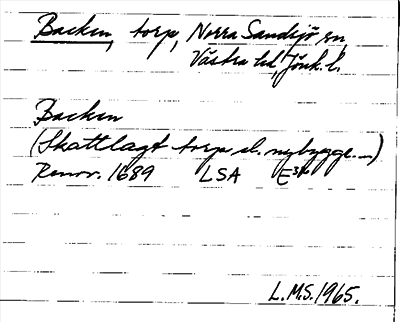 Backen, torp, Norra Sandsjö sn
Västra hd, Jönk. l.
Backen
(Skattlagt torp el. nybygge...)
Renov. 1689 LSA
L.M.S. 1965.